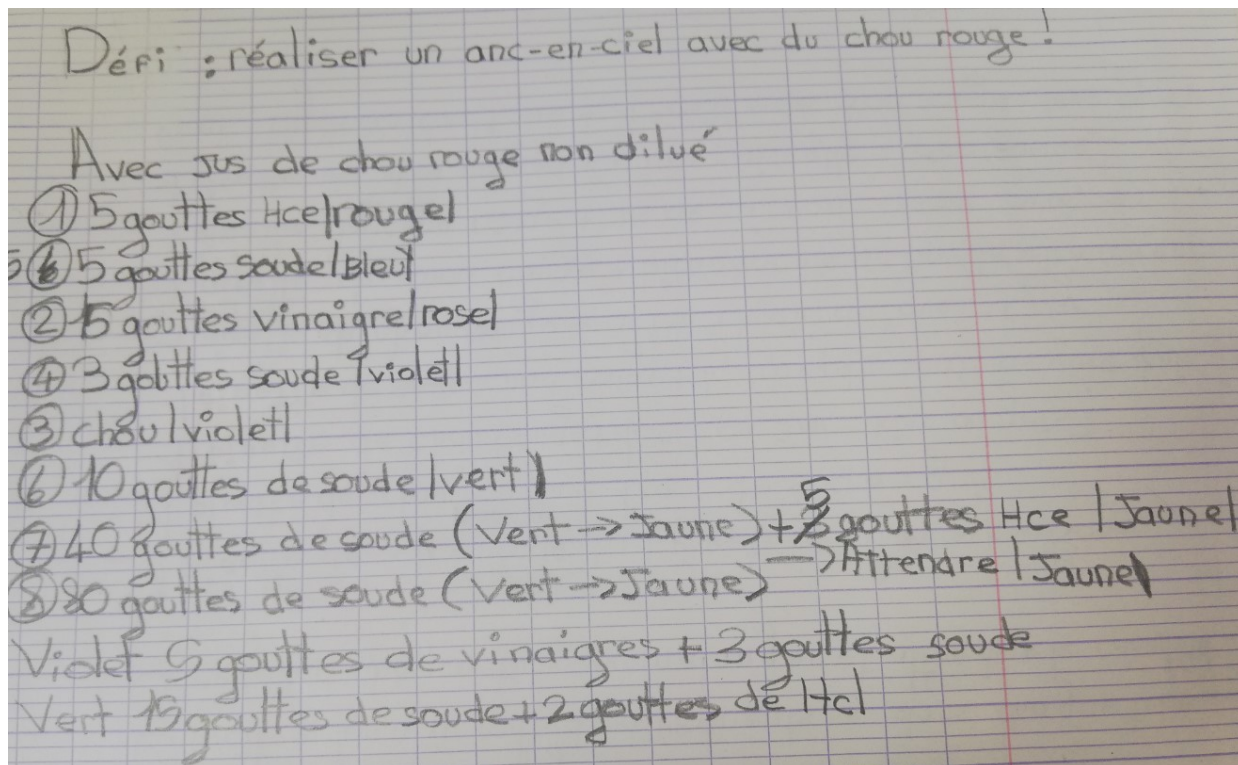 Défi : réaliser un anc-en-ciel avec du chou rouge !
Avec Jus de chou rouge non dilué
① 5 gouttes Hce |rouge|
5 5 gouttes soude |Bleu|
② 15 gouttes vinaigre |rose|
④ 3 gouttes soude |violet|
③ chou |violet|
⑥ 10 gouttes de soude |vert|
⑦ 40 gouttes de soude (Vert → Jaune) + 5 gouttes Hce |Jaune|
⑧ 80 gouttes de soude (Vert → Jaune) → Attendre |Jaune|
Violet 5 gouttes de vinaigres + 3 gouttes soude
Vert 15 gouttes de soude + 2 gouttes de Hcl